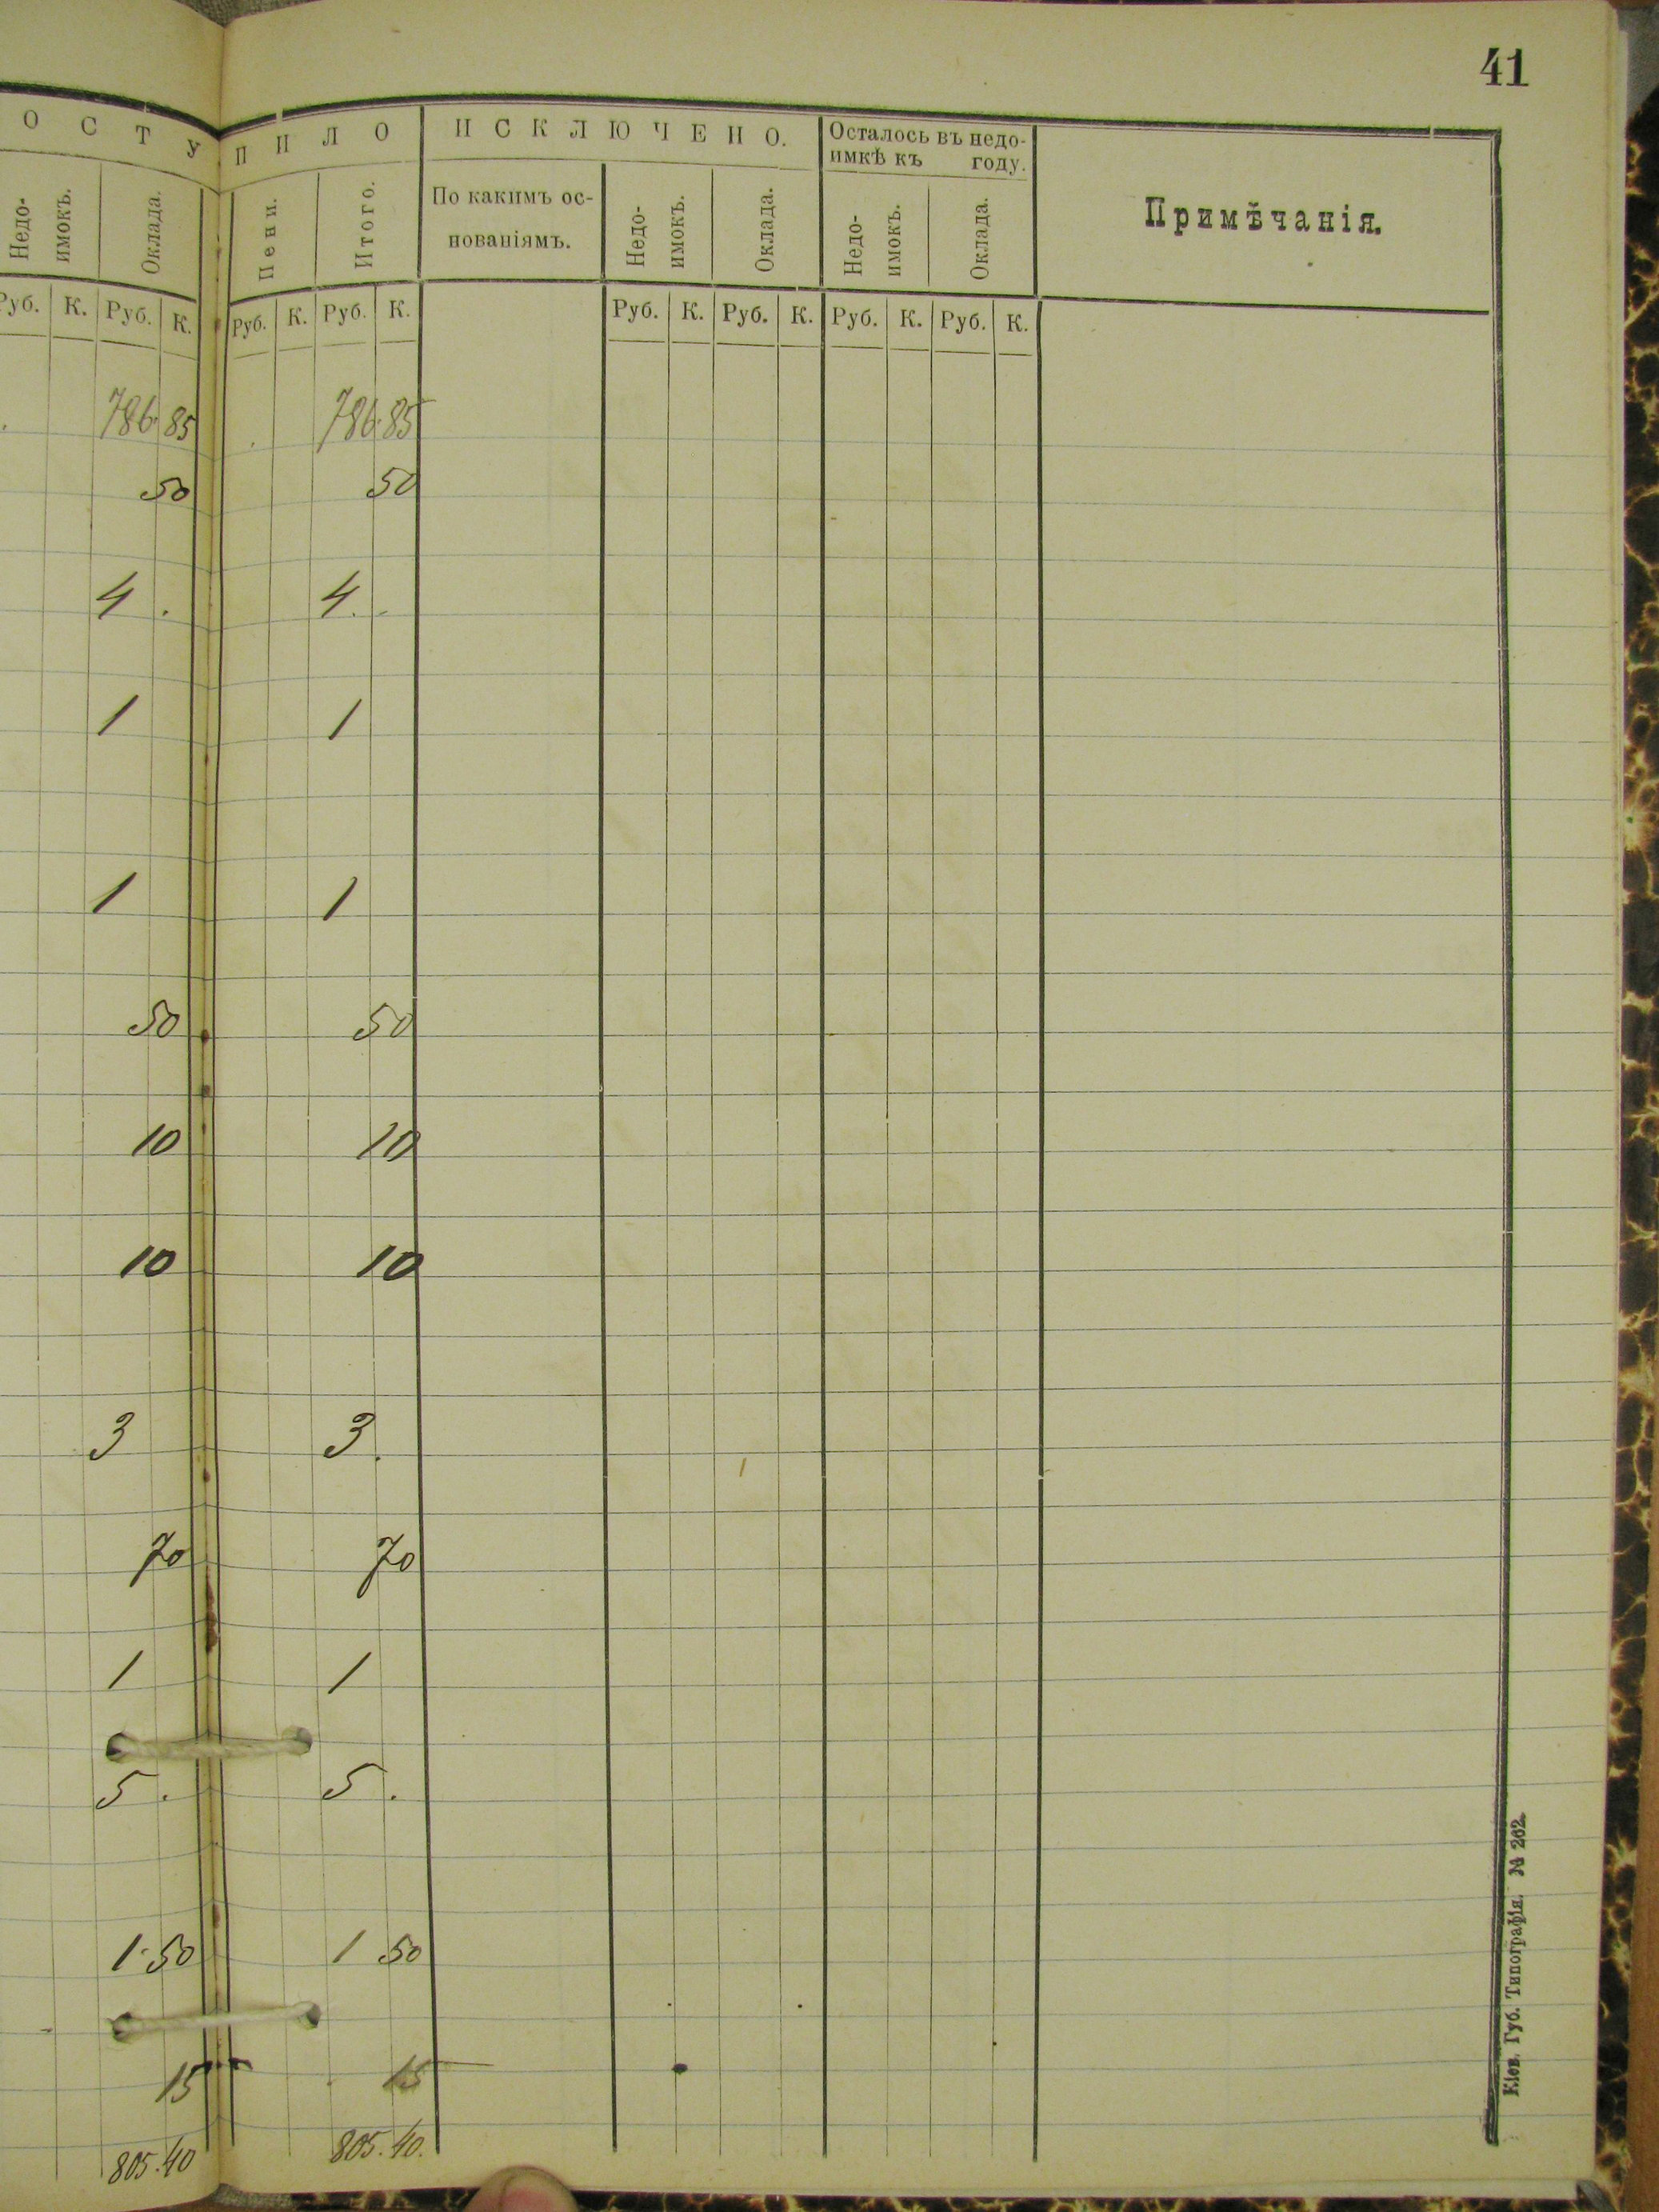 41
ОСТУПИЛО
ИСКЛЮЧЕНО.
Осталось въ недо-
имкѣ къ году.
Примѣчанія.
Недо-
имокъ.
Оклада.
Пени.
Итого.
По какимъ ос-
нованіямъ.
Недо-
имокъ.
Оклада.
Недо-
имокъ.
Оклада.
Руб. К. Руб. К. Руб. К. Руб. К. Руб. К. Руб. К. Руб. К. Руб. К.
786 85 786 85
50 50
4 . 4 .
1 1
1 1
50 50
10 10
10 10
3 3.
70 70
1 1
5 . 5 .
1·50 1 50
15 15
805.40 805.40.
Кіев. Губ. Типографія. № 262.